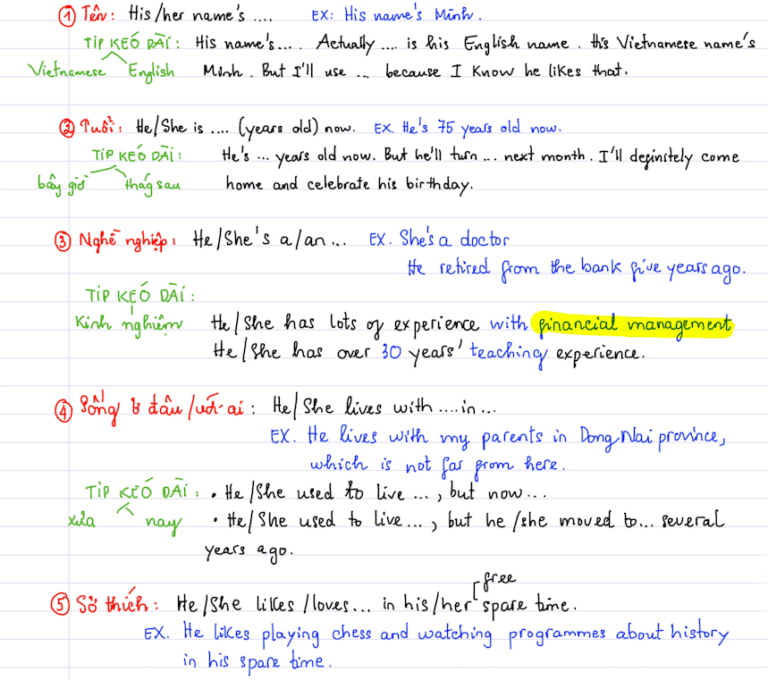 ① Tên: His/her name's .... EX: His name's Minh.
TIP KÉO DÀI: His name's.... Actually .... is his English name. his Vietnamese name's
Vietnamese English Minh. But I'll use ... because I know he likes that.
② Tuổi: He/She is .... (years old) now. EX. He's 75 years old now.
TIP KÉO DÀI: He's ... years old now. But he'll turn ... next month. I'll definitely come
bây giờ tháng sau home and celebrate his birthday.
③ Nghề nghiệp: He/She's a/an... EX. She's a doctor
He retired from the bank five years ago.
TIP KÉO DÀI:
Kinh nghiệm He/She has lots of experience with financial management
He/She has over 30 years' teaching experience.
④ Sống ở đâu/với ai: He/She lives with ....in...
EX. He lives with my parents in Dong Nai province,
which is not far from here.
TIP KÉO DÀI: • He/She used to live ..., but now...
xưa nay • He/She used to live..., but he/she moved to... several
years ago.
free
⑤ Sở thích: He/She likes/loves... in his/her spare time.
EX. He likes playing chess and watching programmes about history
in his spare time.